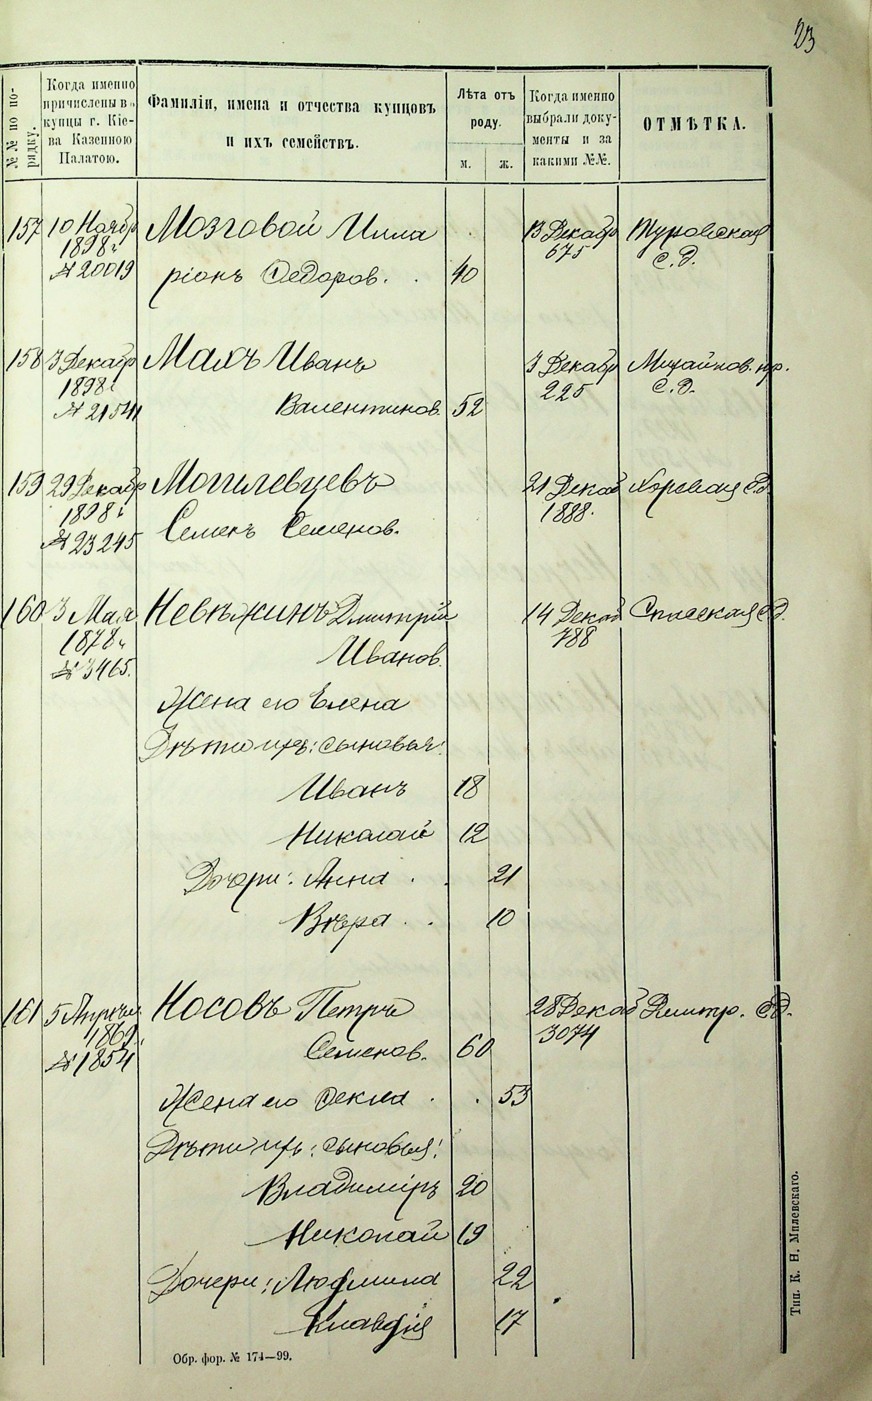 23
№№ по по-
рядку.
Когда именно
причислены въ
купцы г. Кіе-
ва Казенною
Палатою.
Фамиліи, имена и отчества купцовъ
и ихъ семействъ.
Лѣта отъ
роду.
м. ж.
Когда именно
выбрали доку-
менты и за
какими №№.
ОТМѢТКА.
157 10 Ноябр Мозговой Илла 13 Декабр Туровская
1898 г. 675 с. д.
№ 20019 ріонъ Федоров. 40
158 3 Декабр Махъ Иванъ 3 Декабр Михайлов. пр.
1898 г. 225 с. д.
№ 21541 Валентинов. 52
159 29 Декабр Могилевцевъ 21 Декаб Хоревая с.д.
1898 г. 1888.
№ 23245 Семенъ Семенов.
160 3 Мая Невѣжинъ Дмитрій 14 Декаб Спасская с.д.
1878 г. 788
№ 3465. Иванов.
Жена его Елена
Дѣти ихъ: сыновья:
Иванъ 18
Николай 12
Дочери: Анна 21
Вѣра 10
161 5 Апрѣля Носовъ Петръ 28 Декаб Дмитр. с.д.
1869 г. 3074
№ 1854 Семенов. 60
Жена его Фекла 53
Дѣти ихъ: сыновья:
Владиміръ 20
Николай 19
Дочери: Людмила 22
Клавдія 17
Обр. фор. № 174—99.
Тип. К. Н. Милевскаго.